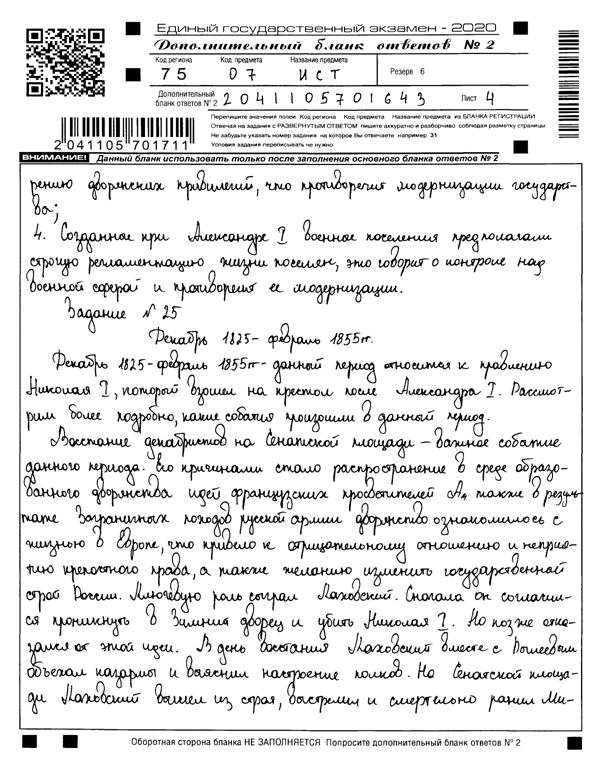 Единый государственный экзамен - 2020
Дополнительный бланк ответов № 2
Код региона Код предмета Название предмета
75 07 ИСТ Резерв 6
Дополнительный бланк ответов № 2 2041105701643 Лист 4
Перепишите значения полей Код региона Код предмета Название предмета из БЛАНКА РЕГИСТРАЦИИ
Отвечая на задания с РАЗВЕРНУТЫМ ОТВЕТОМ пишите аккуратно и разборчиво соблюдая разметку страницы
Не забудьте указать номер задания на которое Вы отвечаете например 31
Условия задания переписывать не нужно
2041105 701711
ВНИМАНИЕ! Данный бланк использовать только после заполнения основного бланка ответов № 2
рению дворянских привилегий, что противоречит модернизации государст-
ва;
4. Созданное при Александре I военное поселения предполагали
строгую регламентацию жизни поселян, это говорит о контроле над
военной сферой и противоречит ее модернизации.
Задание N 25
Декабрь 1825- февраль 1855гг.
Декабрь 1825-февраль 1855гг- данный период относится к правлению
Николая I, который взошел на престол после Александра I. Рассмот-
рим более подробно, какие события произошли в данный период.
Восстание декабристов на Сенатской площади – важное событие
данного периода. Его причинами стало распространение в среде образо-
ванного дворянства идей французских просветителей А, также в резуль-
тате Заграничных походов русской армии дворянство ознакомилось с
жизнью в Европе, что привело к отрицательному отношению и неприя-
тию крепостного права, а также желанию изменить государственной
строй России. Ключевую роль сыграл Каховский. Сначала он согласил-
ся проникнуть в Зимний дворец и убить Николая I. Но позже отка-
зался от этой идеи. В день восстания Каховский вместе с Рылеевым
объехал казармы и выяснил настроение полков. На Сенатской площа-
ди Каховский вышел из строя, выстрелил и смертельно ранил Ми-
Оборотная сторона бланка НЕ ЗАПОЛНЯЕТСЯ Попросите дополнительный бланк ответов № 2